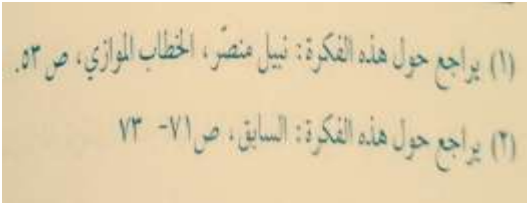 (١) يراجع حول هذه الفكرة: نبيل منصّر، الخطاب الموازي، ص ٥٣.
(٢) يراجع حول هذه الفكرة: السابق، ص٧١- ٧٣